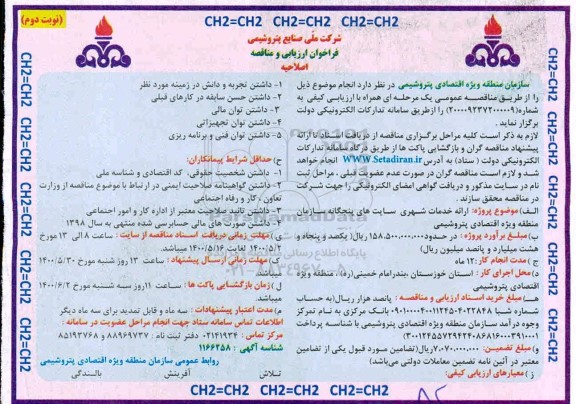 (نوبت دوم)
CH2=CH2 CH2=CH2 CH2=CH2
شرکت ملّی صنایع پتروشیمی
فراخوان ارزیابی و مناقصه
اصلاحیه
سازمان منطقه ویژه اقتصادی پتروشیمی در نظر دارد انجام موضوع ذیل
را از طریق مناقصه عمومی یک مرحله ای همراه با ارزیابی کیفی به
شماره(۲۰۰۰۰۹۲۳۷۲۰۰۰۰۰۹) را ازطریق سامانه تدارکات الکترونیکی دولت
برگزار نماید.
لازم به ذکر است کلیه مراحل برگزاری مناقصه از دریافت اسناد تا ارائه
پیشنهاد مناقصه گران و بازگشایی پاکت ها از طریق درگاه سامانه تدارکات
الکترونیکی دولت ( ستاد) به آدرس www.Setadiran.ir انجام خواهد
شد و لازم است مناقصه گران در صورت عدم عضویت قبلی ، مراحل ثبت
نام در سایت مذکور و دریافت گواهی امضای الکترونیکی را جهت شرکت
در مناقصه محقق سازند .
الف) موضوع پروژه: ارائه خدمات شهری سایت های پنجگانه سازمان
منطقه ویژه اقتصادی پتروشیمی
ب)مبلغ برآورد پروژه : در حدود۱۵۸.۵۰۰.۰۰۰.۰۰۰ریال( یکصد و پنجاه و
هشت میلیارد و پانصد میلیون ریال)
ج ) مدت انجام کار: ۱۲ ماه
د) محل اجرای کار : استان خوزستان ،بندرامام خمینی(ره)، منطقه ویژه
اقتصادی پتروشیمی
هـ)مبلغ خرید اسناد ارزیابی و مناقصه : پانصد هزار ریال(به حساب
شماره شبا بانک مرکزی به نام تمرکز
وجوه درآمد سازمان منطقه ویژه اقتصادی پتروشیمی با شناسه پرداخت
و) مبلغ تضمین: ۷.۰۷۰.۰۰۰.۰۰۰ریال(تضامین مورد قبول یکی از تضامین
معتبر در آئین نامه تضمین معاملات دولتی می‌باشد)
ز ) معیارهای ارزیابی کیفی:
۱- داشتن تجربه و دانش در زمینه مورد نظر
۲- داشتن حسن سابقه در کارهای قبلی
۳- داشتن توان مالی
۴- داشتن توان تجهیزاتی
۵- داشتن توان فنی و برنامه ریزی
ح) حداقل شرایط پیمانکاران:
۱- داشتن شخصیت حقوقی، کد اقتصادی و شناسه ملی
۲- داشتن گواهینامه صلاحیت ایمنی در ارتباط با موضوع مناقصه از وزارت
تعاون ، کار و رفاه اجتماعی
۳- داشتن تائید صلاحیت معتبر از اداره کار و امور اجتماعی
۴- داشتن صورت های مالی حسابرسی شده منتهی به سال ۱۳۹۸
ی) مهلت زمانی دریافت اسناد مناقصه از سایت : ساعت ۸ الی ۱۳ مورخ
۱۴۰۰/۵/۲ لغایت ۱۴۰۰/۵/۱۶ میباشد.
ک) مهلت زمانی ارسال پیشنهاد : ساعت ۱۳ روز شنبه مورخ ۱۴۰۰/۵/۳۰
میباشد.
ل ) زمان بازگشایی پاکت ها : ساعت ۱۱روز سه شنبه مورخ ۱۴۰۰/۶/۲
میباشد.
م) مدت اعتبار پیشنهادات : سه ماه و قابل تمدید برای سه ماه دیگر
اطلاعات تماس سامانه ستاد جهت انجام مراحل عضویت در سامانه :
مرکز تماس : ۰۲۱۴۱۹۳۴ دفتر ثبت نام : ۸۸۹۶۹۷۳۷ و ۸۵۱۹۳۷۶۸
شناسه آگهی : ۱۱۶۶۲۵۸
روابط عمومی سازمان منطقه ویژه اقتصادی پتروشیمی
تلاش آفرینش بالندگی
CH2=CH2 CH2=CH2 CH2=CH2